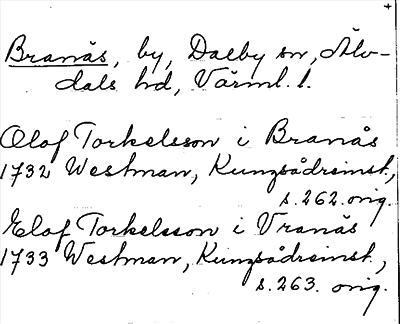 Branäs, by, Dalby sn, Älv-
dals hd, Värml. l.
Olof Torkelsson i Branäs
1732 Westman, Kungsådreinst.,
s. 262. orig.
Elof Torkelsson i Vranäs
1733 Westman, Kungsådreinst.,
s. 263. orig.